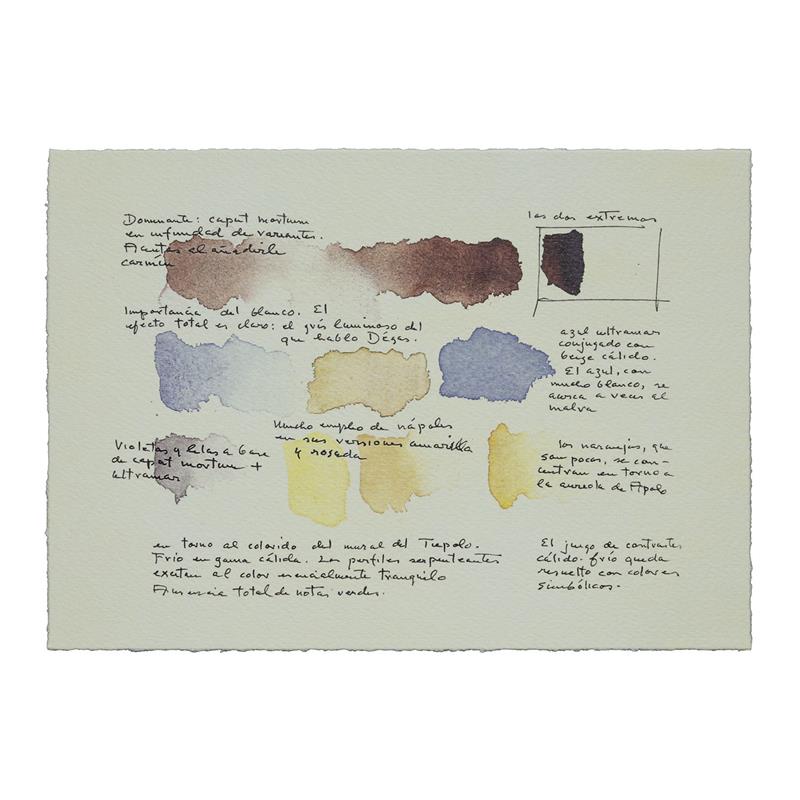 Dominante: caput mortuum
en infinidad de variantes.
Matices al añadirle
carmín
las dos extremos
Importancia del blanco. El
efecto total es claro: el gris luminoso del
que hablo Dégas.
azul ultramar
conjugado con
beige cálido.
El azul, con
mucho blanco, se
acerca a veces al
malva
Mucho empleo de nápoles
en sus versiones amarilla
y rosada
Violetas y lilas a base
de caput mortuum +
ultramar
los naranjas, que
son pocos, se con-
centran en torno a
la aureola de Apolo
en torno al colorido del mural del Tiepolo.
Frío en gama cálida. Los perfiles serpenteantes
excitan al color esencialmente tranquilo
Ausencia total de notas verdes.
El juego de contrastes
cálido-frío queda
resuelto con colores
simbólicos.